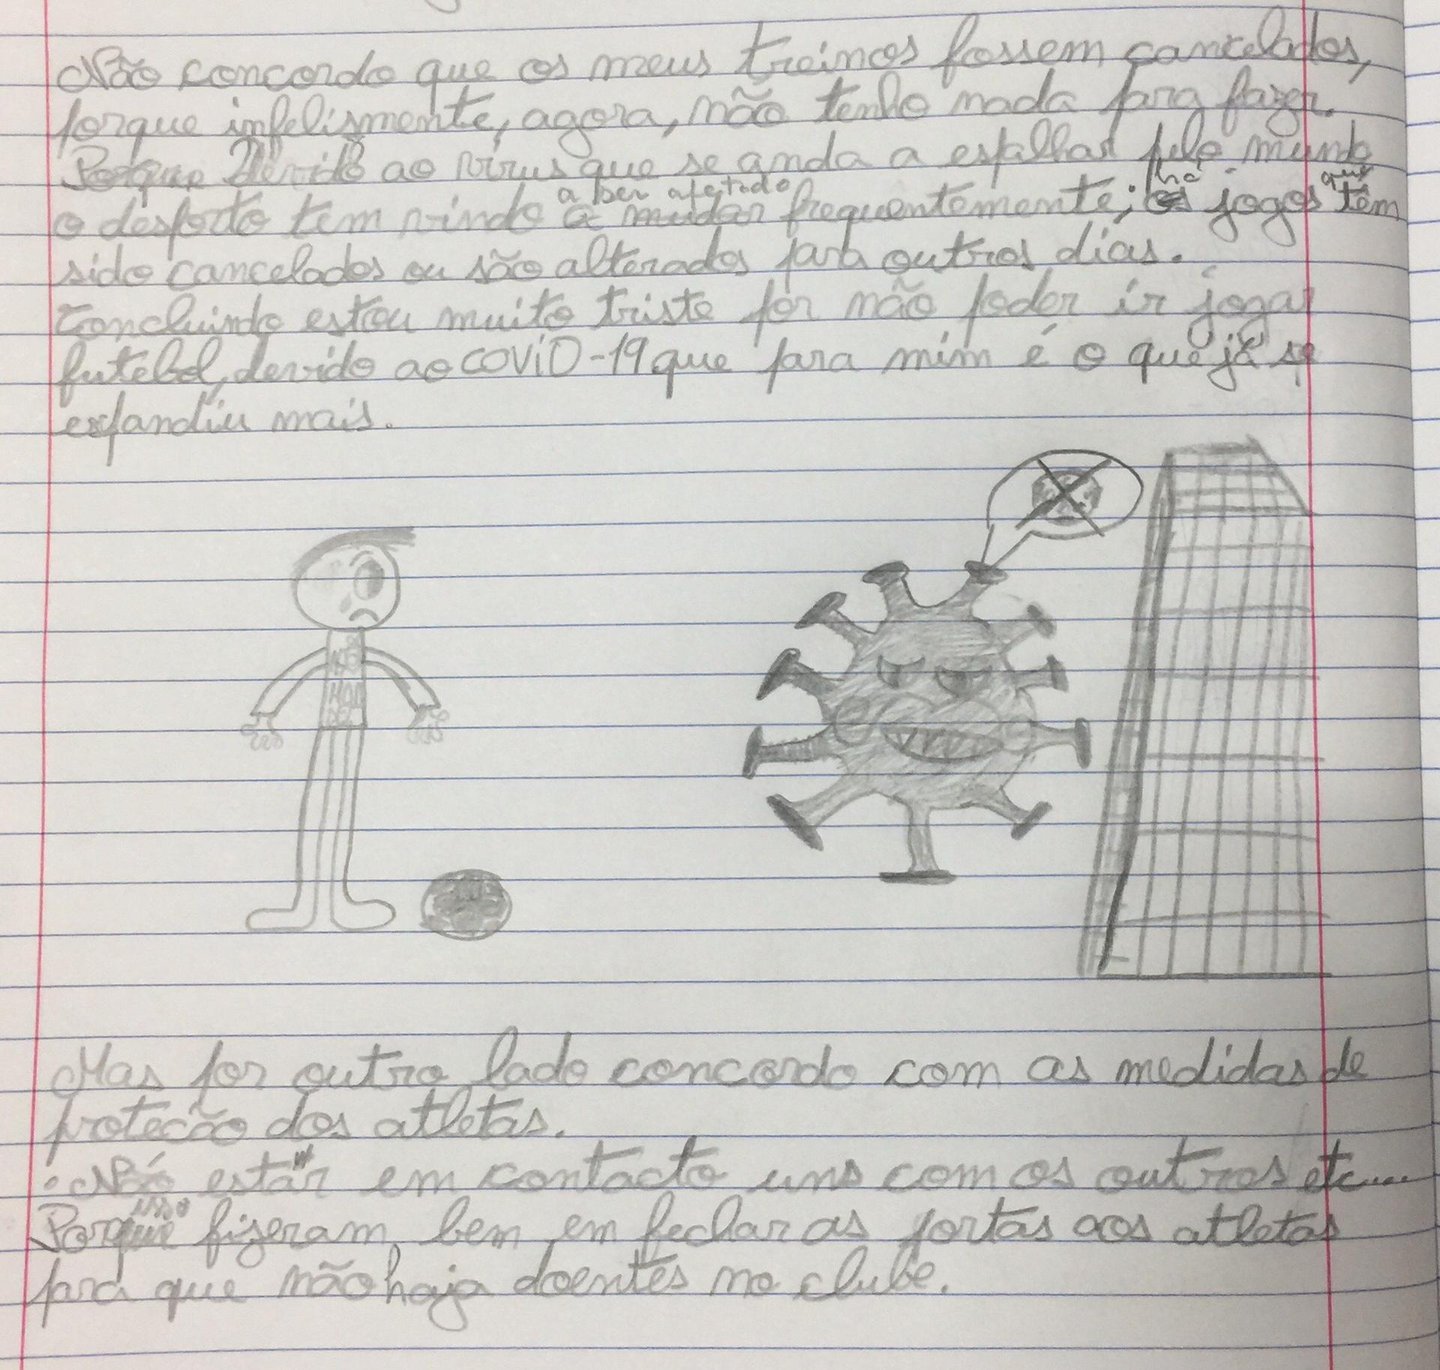 Não concordo que os meus treinos fossem cancelados,
porque infelismente, agora, não tenho nada para fazer.
Devido ao vírus que se anda a espalhar pelo mundo
o desporto tem vindo a ser afetado frequentemente; há jogos que têm
sido cancelados ou são alterados para outros dias.
Concluindo estou muito triste por não poder ir jogar
futebol, devido ao COVID-19 que para mim é o que já se
expandiu mais.
Mas por outro lado concordo com as medidas de
proteção dos atletas.
. Não estar em contacto uns com os outros etc....
Por isso fizeram bem em fechar as portas aos atletas
para que não haja doentes no clube.